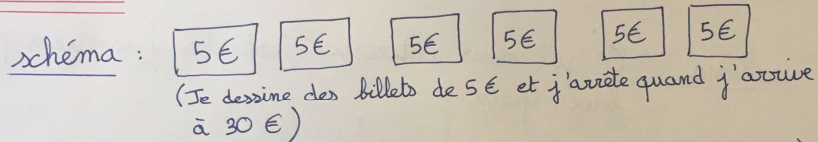 schéma : 5€ 5€ 5€ 5€ 5€ 5€
(Je dessine des billets de 5 € et j'arrête quand j'arrive
à 30 €)